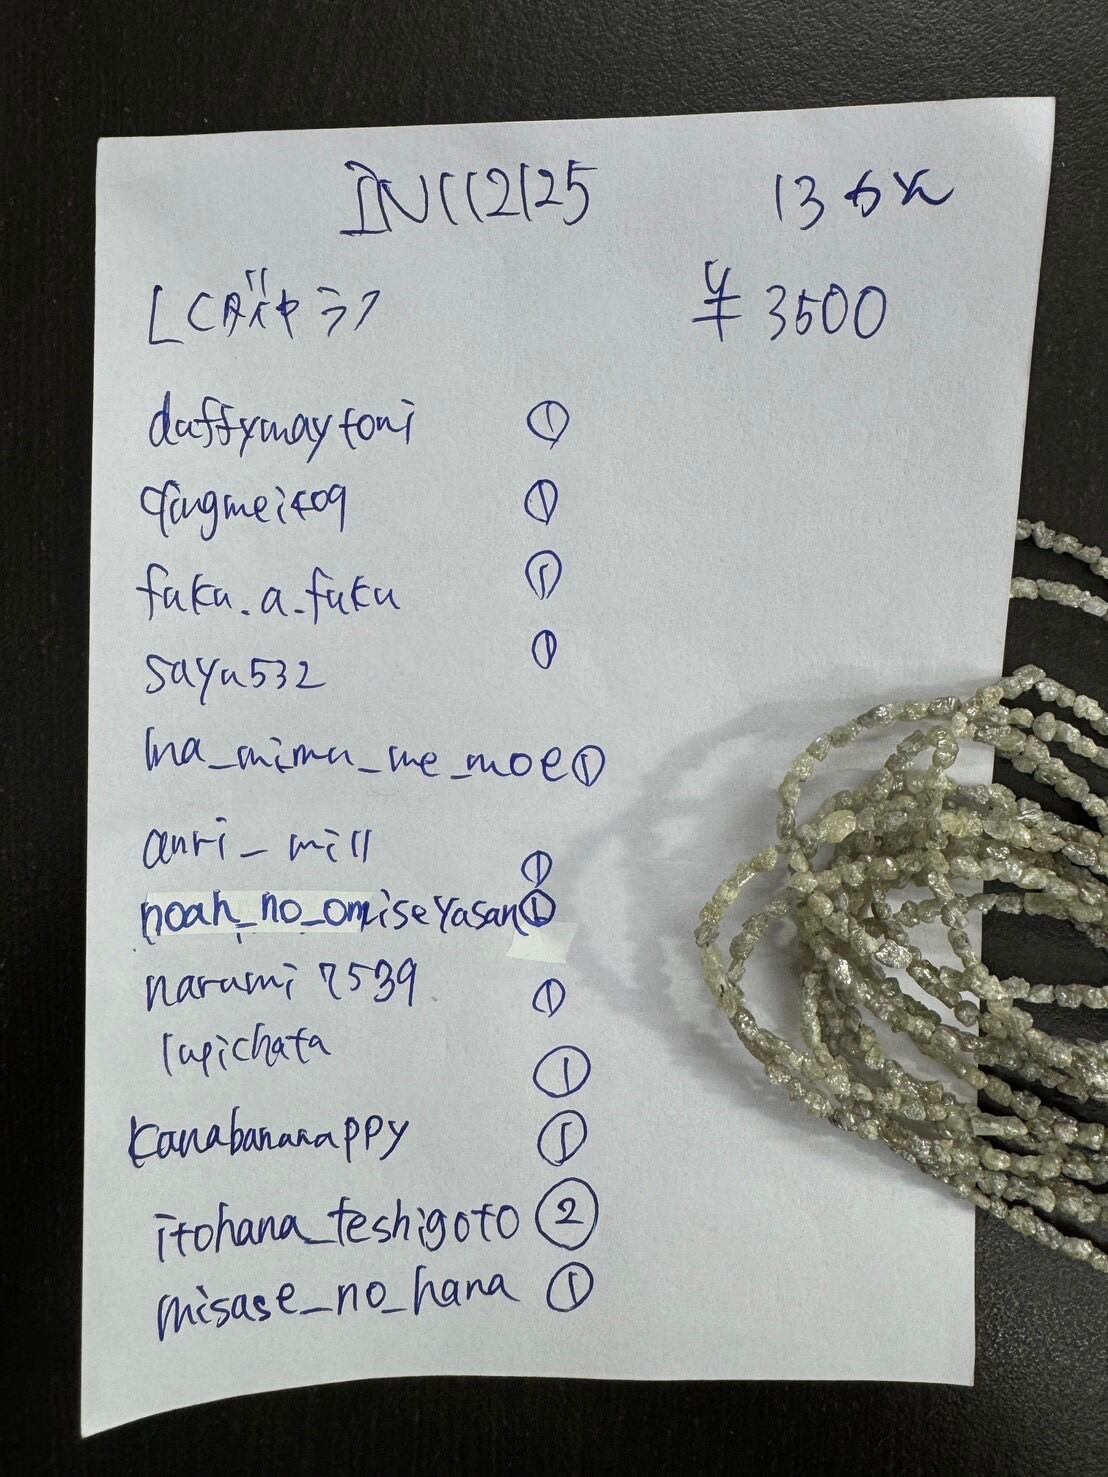 IN112125 13本
LCダイヤラフ ¥3500
daffymaytoni ①
qingmei409 ①
fuku.a.fuku ①
sayu532 ①
ma_mimu_me_moe①
anri_mill ①
noah_no_omiseyasan①
narumi7539 ①
lupichata ①
kanabananappy ①
itohana_teshigoto ②
misase_no_hana ①